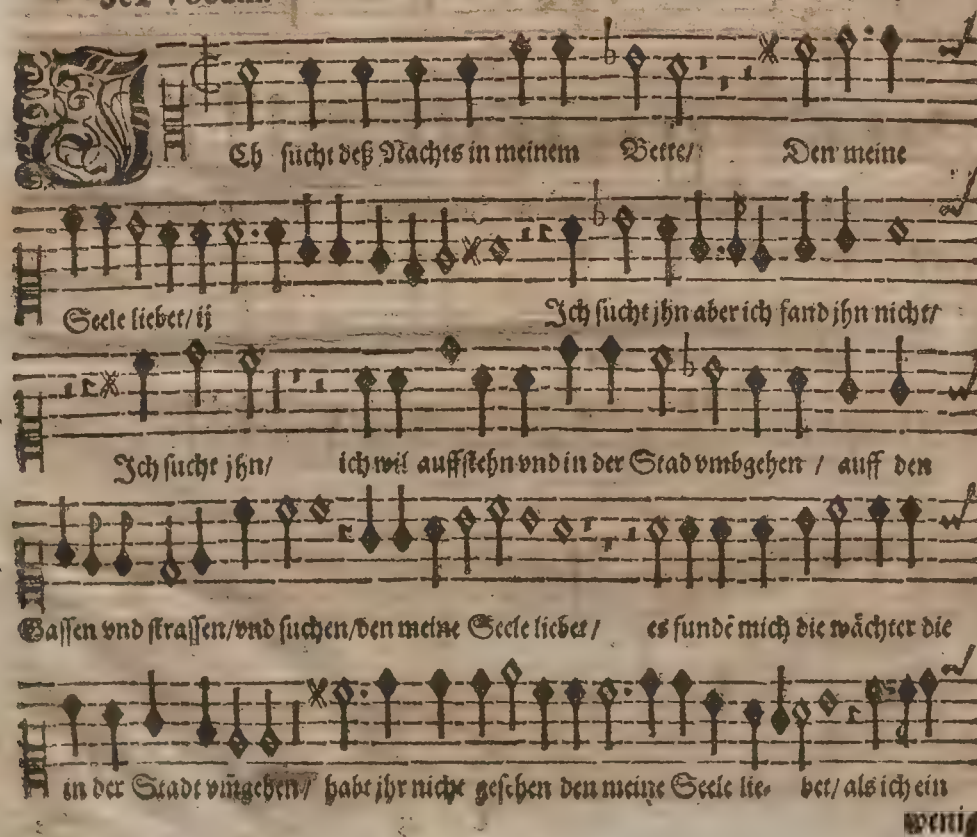 Ch sucht deß Nachts in meinem Bette/ Den meine
Seele liebet/ ij Ich sucht jhn aber ich fand jhn nicht/
Ich sucht jhn/ ich wil auffstehn vnd in der Stad vmbgehen / auff den
Gassen vnd strassen/vnd suchen/den meine Seele liebet/ es fundē mich die wächter die
in der Stadt vm̄gehen/ habt jhr nicht gesehen den meine Seele lie- bet/ als ich ein
weni-